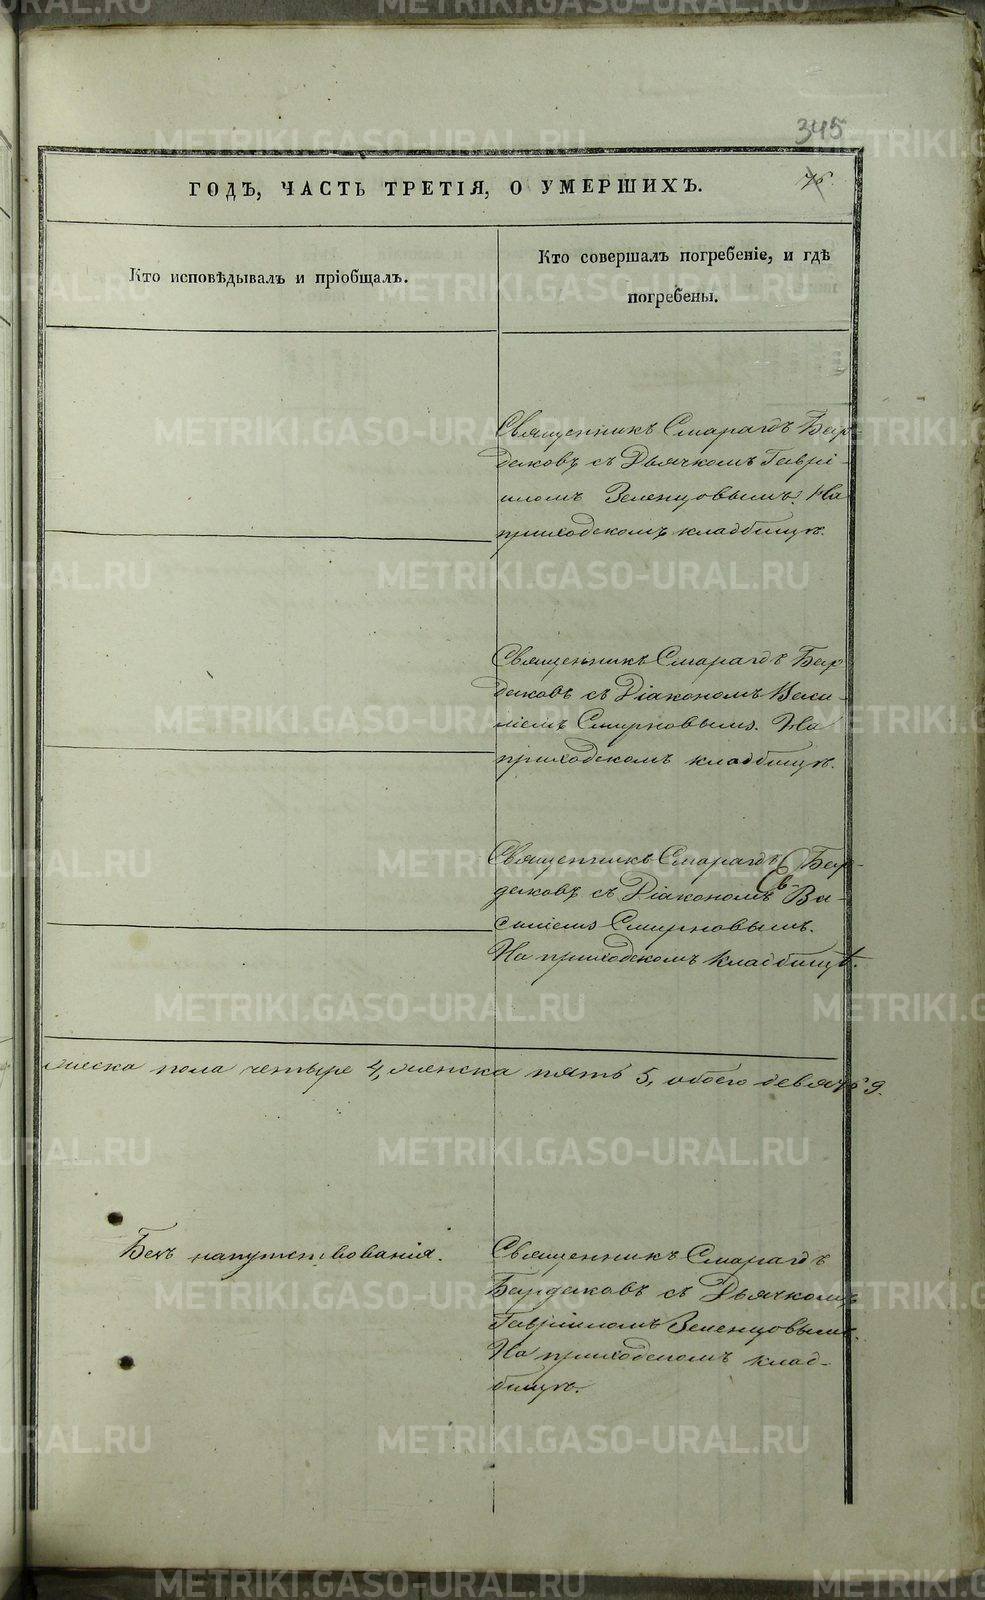 345
ГОДЪ, ЧАСТЬ ТРЕТІЯ, О УМЕРШИХЪ.
Кто исповѣдывалъ и пріобщалъ.
Кто совершалъ погребеніе, и гдѣ
погребены.
Священникъ Смарагдъ Бар-
даковъ съ Дьячкомъ Гаврі-
иломъ Зеленцовымъ. На
приходскомъ кладбищѣ.
Священникъ Смарагдъ Бар-
даковъ съ Діакономъ Васи-
ліемъ Смирновымъ. На
приходскомъ кладбищѣ.
Священникъ Смарагдъ Бар-
даковъ съ Діакономъ Ва-
силіемъ Смирновымъ.
На приходскомъ кладбищѣ.
мужеска пола четыре 4, женска пять 5, обоего девять 9.
Безъ напутствованія.
Священникъ Смарагдъ
Бардаковъ съ Дьячкомъ
Гавріиломъ Зеленцовымъ.
На приходскомъ клад-
бищѣ.
METRIKI.GASO-URAL.RU